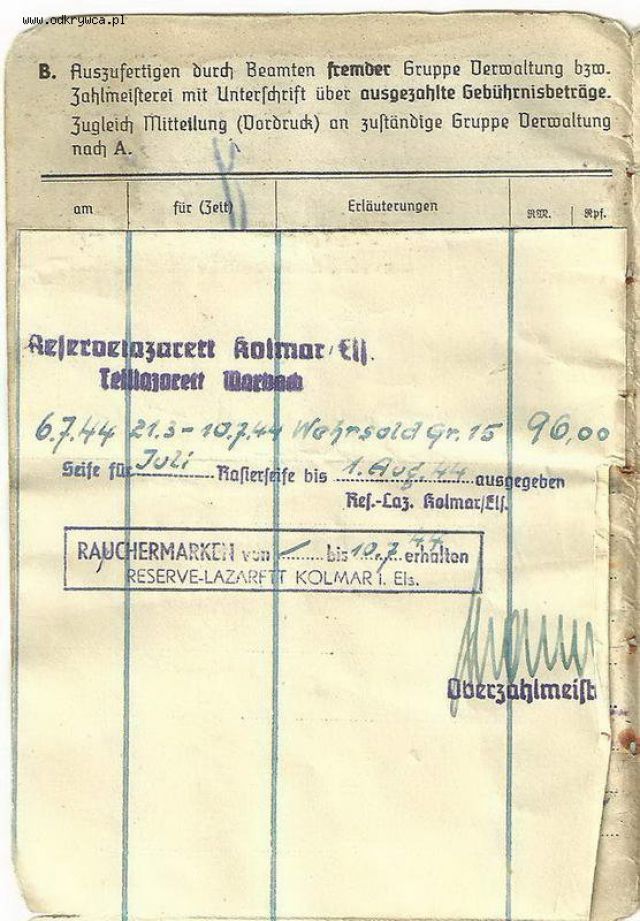 www.odkrywca.pl
B. Auszufertigen durch Beamten fremder Gruppe Verwaltung bzw.
Zahlmeisterei mit Unterschrift über ausgezahlte Gebührnisbeträge.
Zugleich Mitteilung (Vordruck) an zuständige Gruppe Verwaltung
nach A.
am für (Zeit) Erläuterungen RM. Rpf.
Reservelazarett Kolmar/Els.
Teillazarett Marbach
6.7.44 21.3-10.7.44 Wehrsold Gr. 15 96,00
Seife für Juli Rasierseife bis 1. Aug. 44 ausgegeben
Res.-Laz. Kolmar/Els.
RAUCHERMARKEN von bis 10.7.44 erhalten
RESERVE-LAZARETT KOLMAR i. Els.
Oberzahlmeist